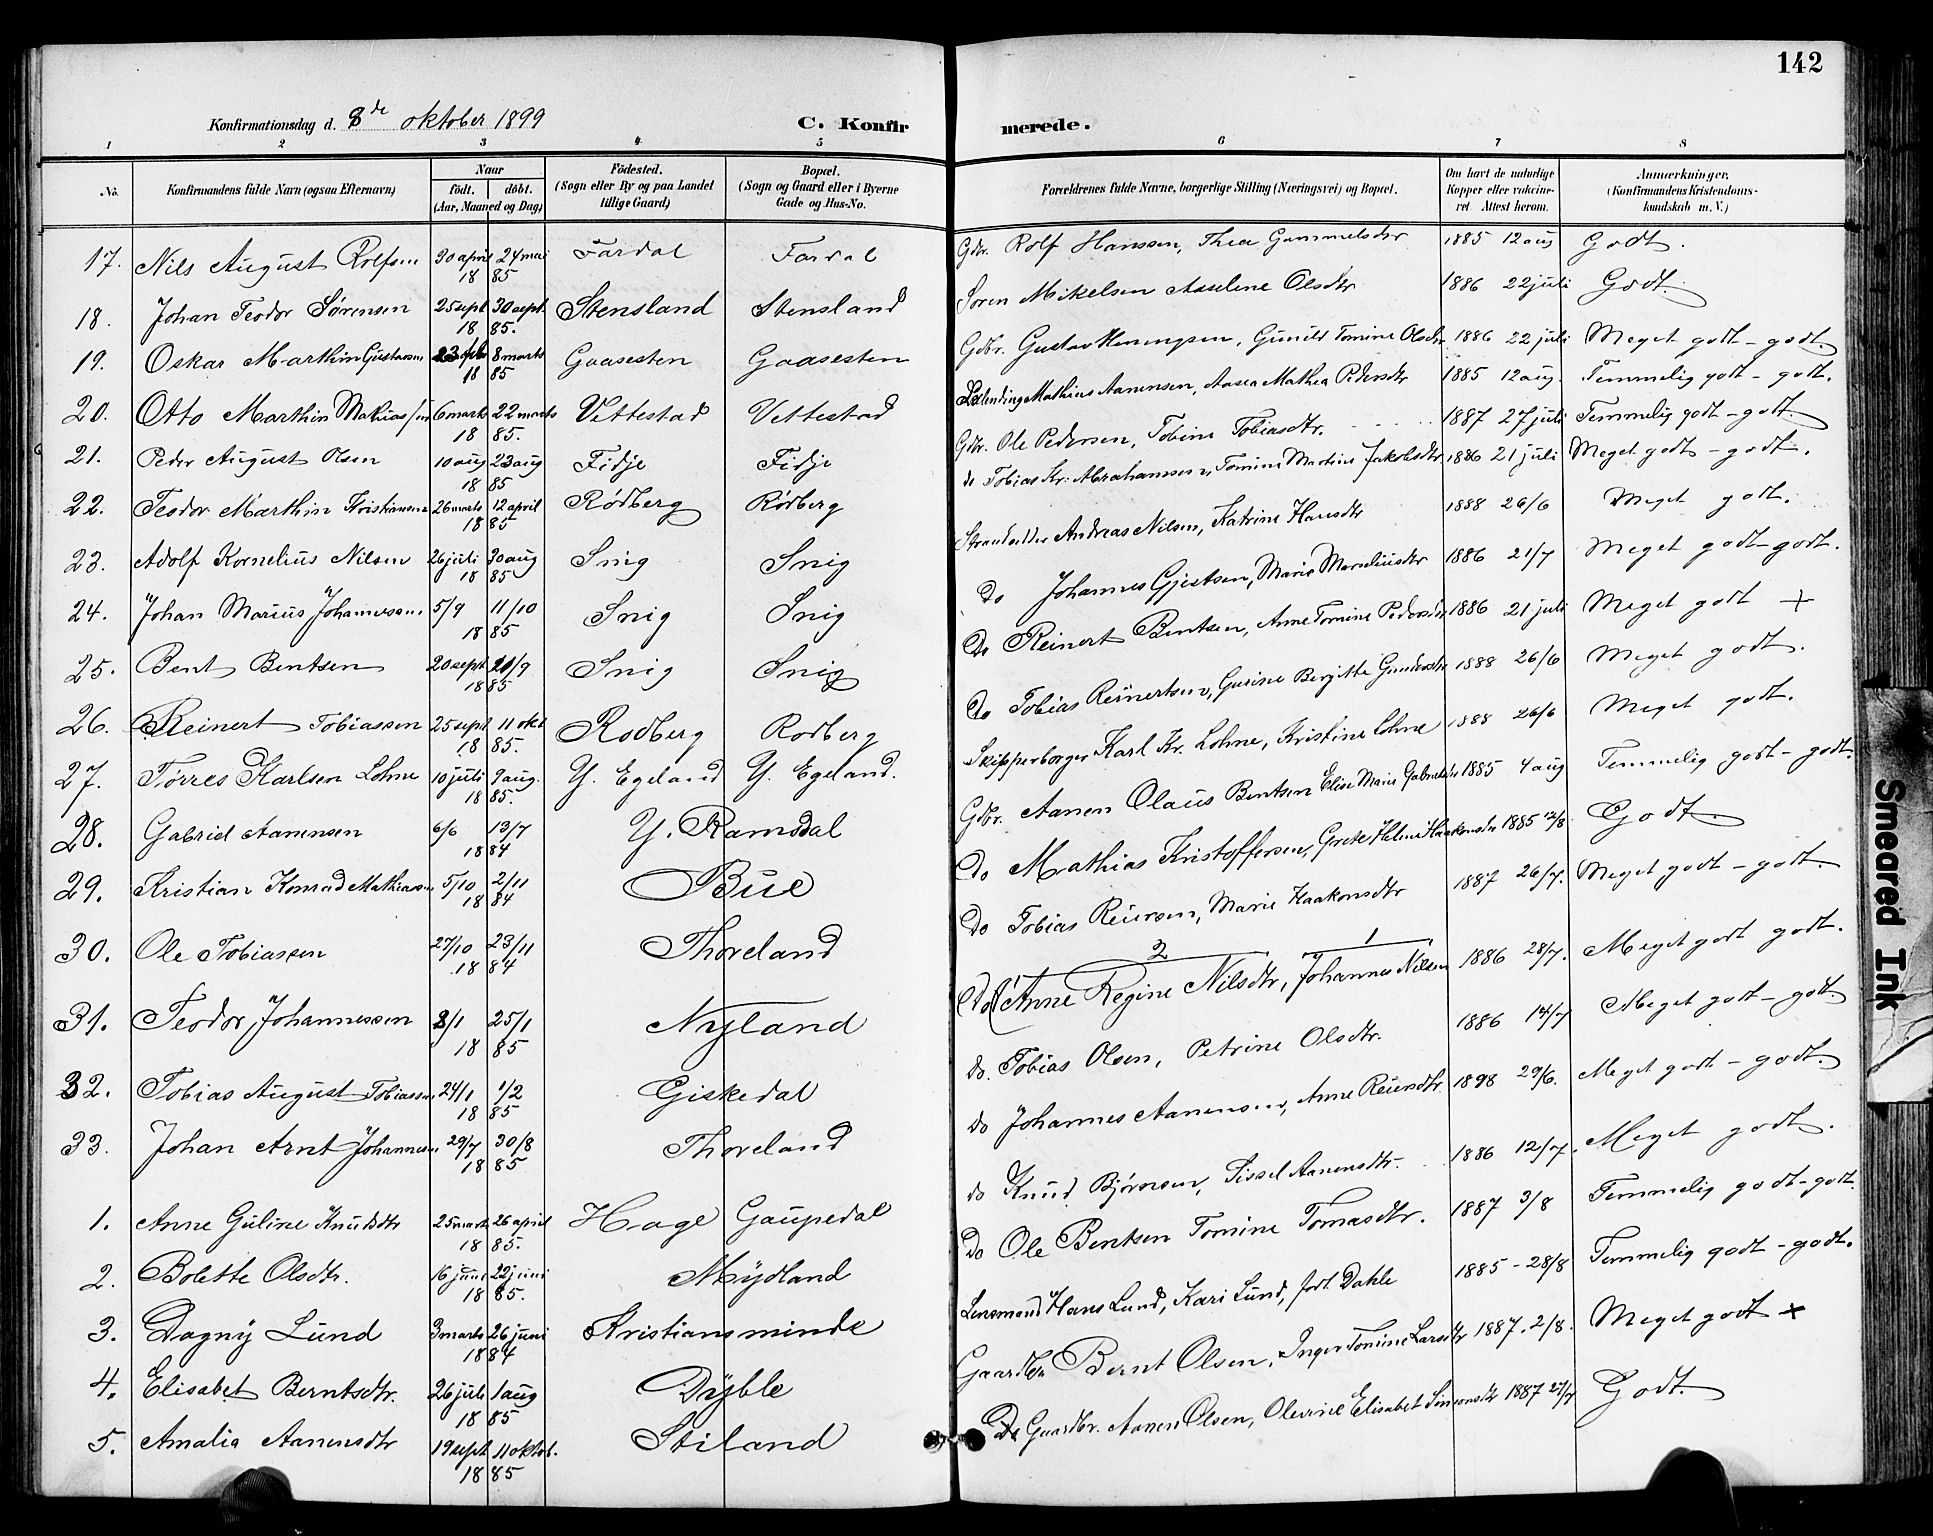 142
Konfirmationsdag d. 8de oktober 1899 C. Konfirmerede.
1 2 3 4 5 6 7 8
No. Konfirmandens fulde Navn (ogsaa Efternavn) Naar födt. döbt. (Aar, Maaned og Dag) Födested. (Sogn eller By og paa Landet tillige Gaard) Bopæl. (Sogn og Gaard eller i Byerne Gade og Hus-No. Forældrenes fulde Navne, borgerlige Stilling (Næringsvei) og Bopæl. Om havt de naturlige Kopper eller vaccineret. Attest herom. Anmærkninger. (Konfirmandens Kristendomskundskab m. V.)
17. Nils August Rolfsen 30 april 24 mai 1885 Fardal Fardal Gdbr. Rolf Hanssen, Thea Gammelsdtr 1885 12 aug Godt.
18. Johan Teodor Sørensen 25 sept 30 sept. 1885. Stensland Stensland Søren Mikelsen Aaselene Olsdtr 1886 22 juli Godt.
19. Oskar Marthin Gustavsen 23 feb 8 marts 1885 Gaasesten Gaasesten Gdbr. Gustav Henningsen, Gunild Tomine Olsdtr 1886 22 juli Meget godt - godt.
20. Otto Marthin Mathiassen 6 marts 22 marts 1885. Vettestad Vettestad Mathias Aanensen, Aasea Mathea Pedersdtr 1885 12 aug. Temmelig godt - godt.
21. Peder August Olsen 10 aug 23 aug 1885 Fidje Fidje Gdbr. Ole Pedersen, Tobine Tobiasdtr. 1887 27 juli Temmelig godt - godt.
22. Teodor Marthin Kristiansen 26 marts 12 april 1885 Rødberg Rødberg do Tobias Kr. Abrahamsen, Tomine Martine Jakobsdtr 1886 21 juli Meget godt - godt.
23. Adolf Kornelius Nilsen 26 juli 30 aug 1885 Snig Snig Strandsidder Andreas Nilsen, Katrine Hansdtr 1888 26/6 Meget godt.
24. Johan Marius Johannessen 5/9 11/10 1885 Snig Snig Do Johannes Gjertsen, Marie 1886 21/7 Meget godt godt.
25. Bent Bentsen 20 sept 21/9 1885 Snig Snig Do Reinert Bentsen, Anne Tomine Pedersdtr 1886 21 juli Meget godt +
26. Reinert Tobiassen 25 sept 11 okt 1885. Rødberg Rødberg Do Tobias Reinertsen, Gurine Bergitte Gundersdtr 1888 26/6 Meget godt.
27. Torres Karlsen Lohne 10 juli 9 aug. 1885. Y. Egeland Y. Egeland. Skipperborger Karl Kr. Lohne, Kristine Lohne 1888 26/6 Meget godt.
28. Gabriel Aanensen 6/6 13/7 1884 Y. Ramsdal Gdbr. Aanen Olaus Bentsen Elise Marie Gabrielsdtr 1885 4 aug Temmelig godt - godt.
29. Kristian Konrad Mathiassen 5/10 2/11 1884 Bue Do Mathias Kristoffersen, Grete Helene Haakonsdtr 1885 12/8 Godt.
30. Ole Tobiassen 27/10 23/11 1884 Thoreland Do Tobias Reiersen, Marie Haakonsdtr 1887 26/7. Meget godt - godt.
31. Teodor Johannessen 8/1 25/1 1885 Nyland Do 2 Anne Regine Nilsdtr, 1 Johannes Nilsen 1886 28/7. Meget godt godt.
32. Tobias August Tobiassen 24/1 1/2 1885 Giskedal do. Tobias Olsen, Petrine Olsdtr. 1886 14/7 Meget godt - godt.
33. Johan Arnt Johannessen 29/7 30/8 1885 Thoreland do Johannes Aanensen, Anne Reiersdtr 1898 29/6. Meget godt - godt.
1. Anne Guline Knudsdtr 25 marts 26 april 1885. Hage Gaupedal do Knud Bjørnsen, Sissel Aanensdtr. 1886 12/7. Meget godt.
2. Bolette Olsdtr. 16 juni 22 juni 1885. Mydland Do Ole Bentsen Tomine Tomasdtr. 1887 3/8 Temmelig godt - godt.
3. Dagny Lund 3 marts 26 juni 1884 Kristiansminde Lensmand Hans Lund, Kari Lund, født Dahle 1885 - 28/8 Temmelig godt - godt.
4. Elisabet Berntsdtr. 26 juli 1 aug 1885 Dyble Gaardbr Bernt Olsen, Inger Tomine Larsdtr 1887. 2/8. Meget godt +
5. Amalia Aanensdtr 19 sept 11 oktob. 1885 Stiland Do Gaardbr. Aanen Olsen, Olevine Elisabet Simonsdtr 1887 27/7 Godt.
Smeared Ink